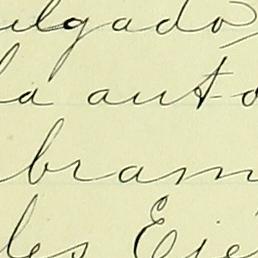 elgado
la auto
bram
les Eje